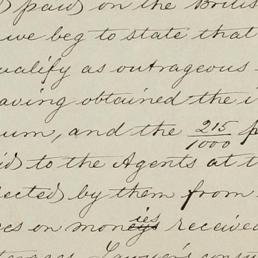 paid on the Britis
we beg to state that
ualify as outrageous
aving obtained the i
um, and the 215/1000 p
id to the Agents at t
ected by them from
es on monies received